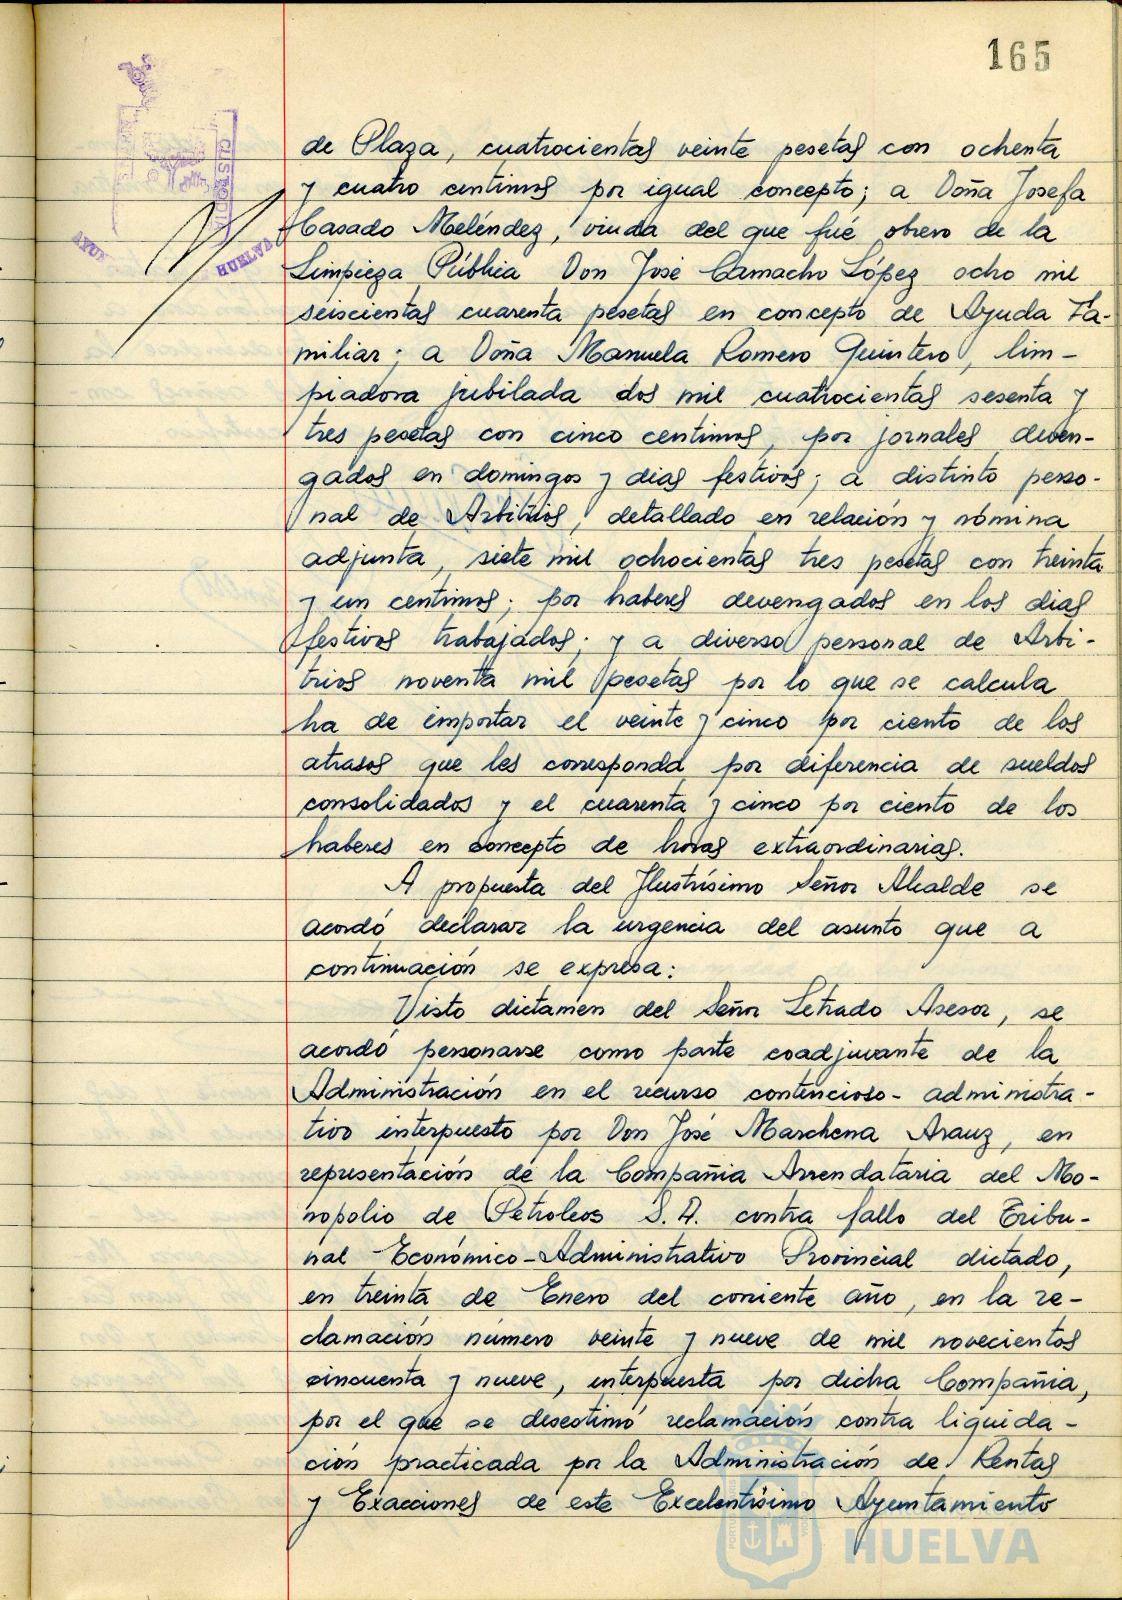 165
CUSTODIA
AYUN
HUELVA
de Plaza, cuatrocientas veinte pesetas con ochenta
y cuatro centimos por igual concepto; a Doña Josefa
Casado Meléndez, viuda del que fué obrero de la
Limpieza Pública Don José Camacho López ocho mil
seiscientas cuarenta pesetas en concepto de Ayuda Fa-
miliar; a Doña Manuela Romero Quintero, lim-
piadora jubilada dos mil cuatrocientas sesenta y
tres pesetas con cinco centimos, por jornales deven-
gados en domingos y dias festivos; a distinto perso-
nal de Arbitrios, detallado en relación y nómina
adjunta, siete mil ochocientas tres pesetas con treinta
y un centimos; por haberes devengados en los dias
festivos trabajados; y a diverso personal de Arbi-
trios noventa mil pesetas por lo que se calcula
ha de importar el veinte y cinco por ciento de los
atrasos que les corresponda por diferencia de sueldos
consolidados y el cuarenta y cinco por ciento de los
haberes en concepto de horas extraordinarias.
A propuesta del Ilustrísimo Señor Alcalde se
acordó declarar la urgencia del asunto que a
continuación se expresa:
Visto dictamen del Señor Letrado Asesor, se
acordó personarse como parte coadjuvante de la
Administración en el recurso contencioso-administra-
tivo interpuesto por Don José Marchena Arauz, en
representación de la Compañia Arrendataria del Mo-
nopolio de Petroleos S.A. contra fallo del Tribu-
nal Económico-Administrativo Provincial dictado,
en treinta de Enero del corriente año, en la re-
clamación número veinte y nueve de mil novecientos
cincuenta y nueve, interpuesta por dicha Compañia,
por el que se desestimó reclamación contra liquida-
ción practicada por la Administración de Rentas
y Exacciones de este Excelentísimo Ayuntamiento
HUELVA